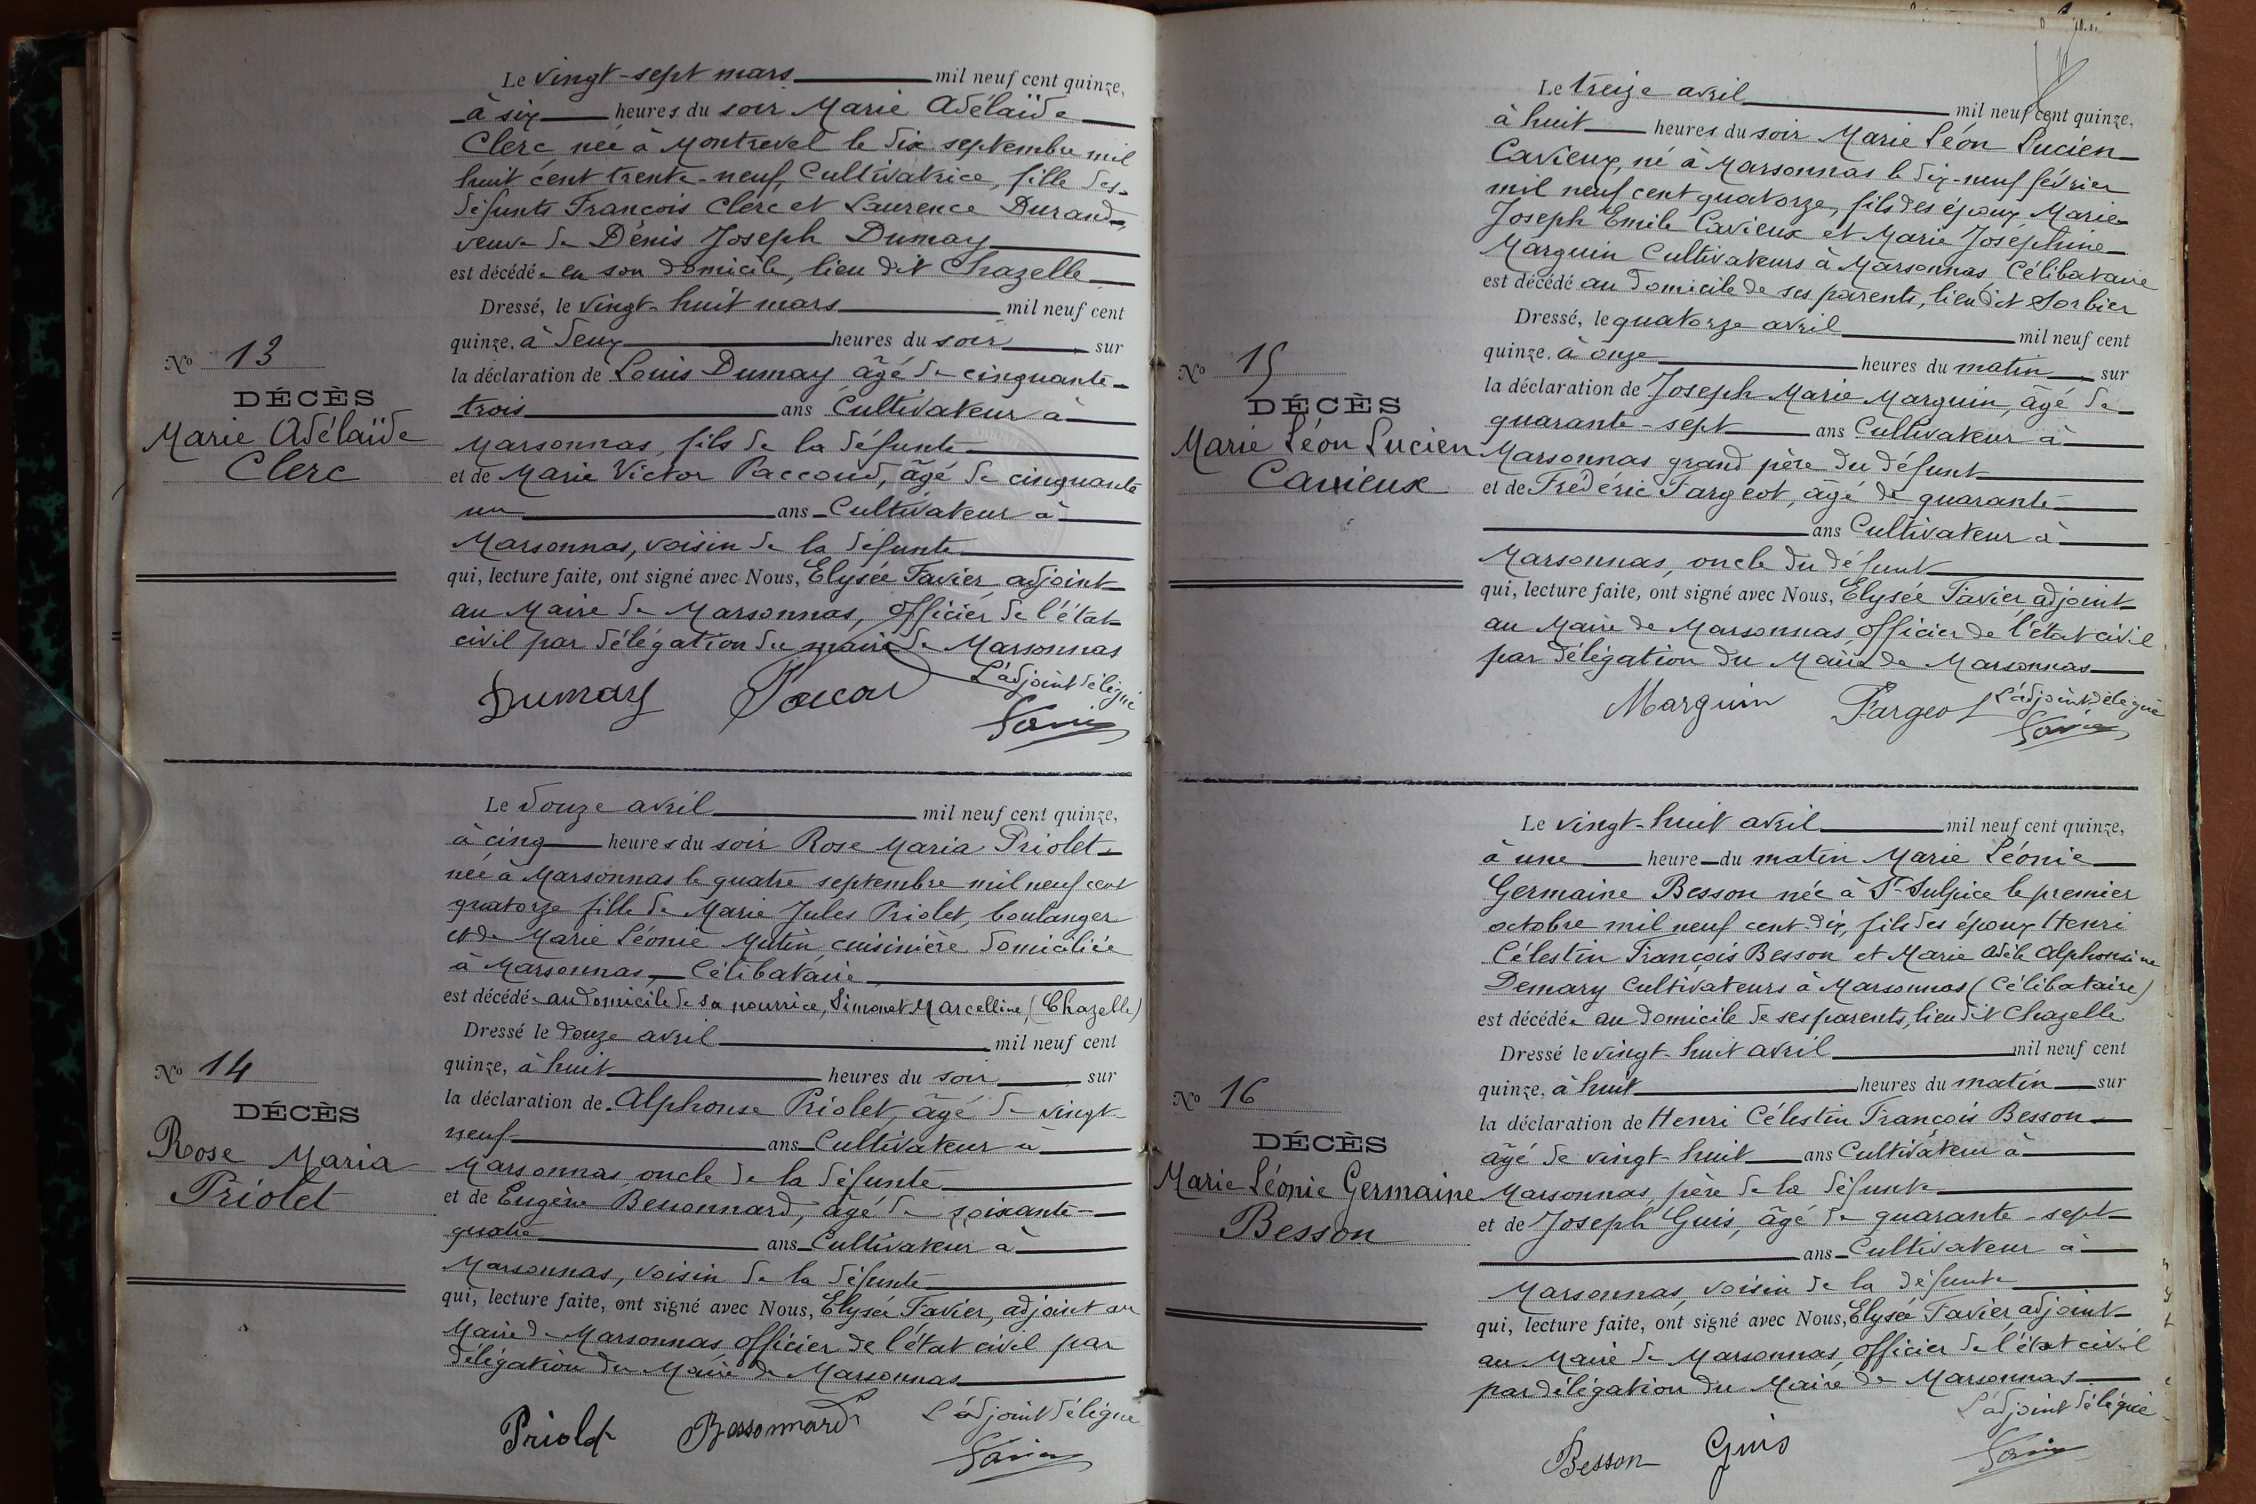 Le vingt-sept mars mil neuf cent quinze,
à six heures du soir Marie Adélaïde
Clerc née à Montrevel le dix septembre mil
huit cent trente-neuf, Cultivatrice, fille des
défunts François Clerc et Laurence Durand,
veuve de Dénis Joseph Dumay
est décédée en son domicile, lieu dit Chazelle
Dressé, le vingt-huit mars mil neuf cent
quinze, à deux heures du soir, sur
la déclaration de Louis Dumay âgé de cinquante-
trois ans Cultivateur à
Marsonnas, fils de la défunte
et de Marie Victor Paccoud, âgé de cinquante
un ans Cultivateur à
Marsonnas, voisin de la défunte
qui, lecture faite, ont signé avec Nous, Elysée Favier adjoint
au Maire de Marsonnas, Officier de l'état
civil par délégation du maire de Marsonnas
L'adjoint délégué
Dumay
No 13
DÉCÈS
Marie Adélaïde
Clerc
Le douze avril mil neuf cent quinze,
à cinq heures du soir Rose Maria Priolet
née à Marsonnas le quatre septembre mil neuf cent
quatorze fille de Marie Jules Priolet, boulanger
et de Marie Léonie Mutin cuisinière domiciliée
à Marsonnas, Célibataire
est décédée au domicile de sa nourrice, Simonet Marcelline, (Chazelle)
Dressé le douze avril mil neuf cent
quinze, à huit heures du soir, sur
la déclaration de Alphonse Priolet, âgé de vingt-
neuf ans Cultivateur à
Marsonnas, oncle de la défunte
et de Eugène Bessonnard, âgé de soixante-
quatre ans Cultivateur à
Marsonnas, voisin de la défunte
qui, lecture faite, ont signé avec Nous, Elysée Favier, adjoint au
Maire de Marsonnas Officier de l'état civil par
délégation du Maire de Marsonnas
L'adjoint délégué
Priolet Bessonnard
No 14
DÉCÈS
Rose Maria
Priolet
Le treize avril mil neuf cent quinze,
à huit heures du soir Marie Léon Lucien
Cavieux, né à Marsonnas le dix-neuf février
mil neuf cent quatorze, fils des époux Marie
Joseph Emile Cavieux et Marie Joséphine
Marguin Cultivateurs à Marsonnas Célibataire
est décédé au domicile de ses parents, lieu dit Sorbier
Dressé, le quatorze avril mil neuf cent
quinze, à onze heures du matin, sur
la déclaration de Joseph Marie Marguin, âgé de
quarante-sept ans Cultivateur à
Marsonnas grand père du défunt
et de Frédéric Fargeot, âgé de quarante
ans Cultivateur à
Marsonnas, oncle du défunt
qui, lecture faite, ont signé avec Nous, Elysée Favier, adjoint
au Maire de Marsonnas Officier de l'état civil
par délégation du Maire de Marsonnas
L'adjoint délégué
Marguin Fargeot
No 15
DÉCÈS
Marie Léon Lucien
Cavieux
Le vingt-huit avril mil neuf cent quinze,
à une heure du matin Marie Léonie
Germaine Besson née à St-Sulpice le premier
octobre mil neuf cent dix, fils des époux Henri
Célestin François Besson et Marie Adèle Alphonsine
Demary Cultivateurs à Marsonnas (Célibataire)
est décédée au domicile de ses parents, lieu dit Chazelle
Dressé le vingt-huit avril mil neuf cent
quinze, à huit heures du matin sur
la déclaration de Henri Célestin François Besson
âgé de vingt-huit ans Cultivateur à
Marsonnas, père de la défunte
et de Joseph Guis, âgé de quarante-sept
ans Cultivateur à
Marsonnas, voisin de la défunte
qui, lecture faite, ont signé avec Nous, Elysée Favier adjoint
au Maire de Marsonnas Officier de l'état civil
par délégation du Maire de Marsonnas
L'adjoint délégué
Besson Guis
No 16
DÉCÈS
Marie Léonie Germaine
Besson